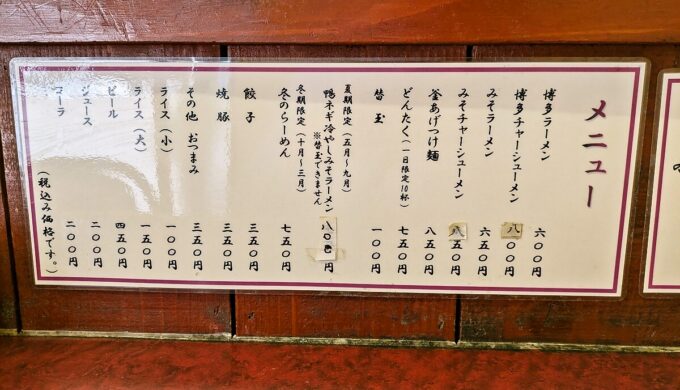 メニュー
博多ラーメン 六〇〇円
博多チャーシューメン 八〇〇円
みそラーメン 六五〇円
みそチャーシューメン 八五〇円
釜あげつけ麺 八五〇円
どんたく(一日限定10杯) 七五〇円
替玉 一〇〇円
夏期限定(五月〜九月)
鴨ネギ冷やしみそラーメン 八〇〇円
※替玉できません
冬期限定(十月〜三月)
冬のらーめん 七五〇円
餃子 三五〇円
焼豚 三五〇円
その他 おつまみ 三五〇円
ライス(小) 一〇〇円
ライス(大) 一五〇円
ビール 四五〇円
ジュース 二〇〇円
コーラ 二〇〇円
(税込み価格です。)